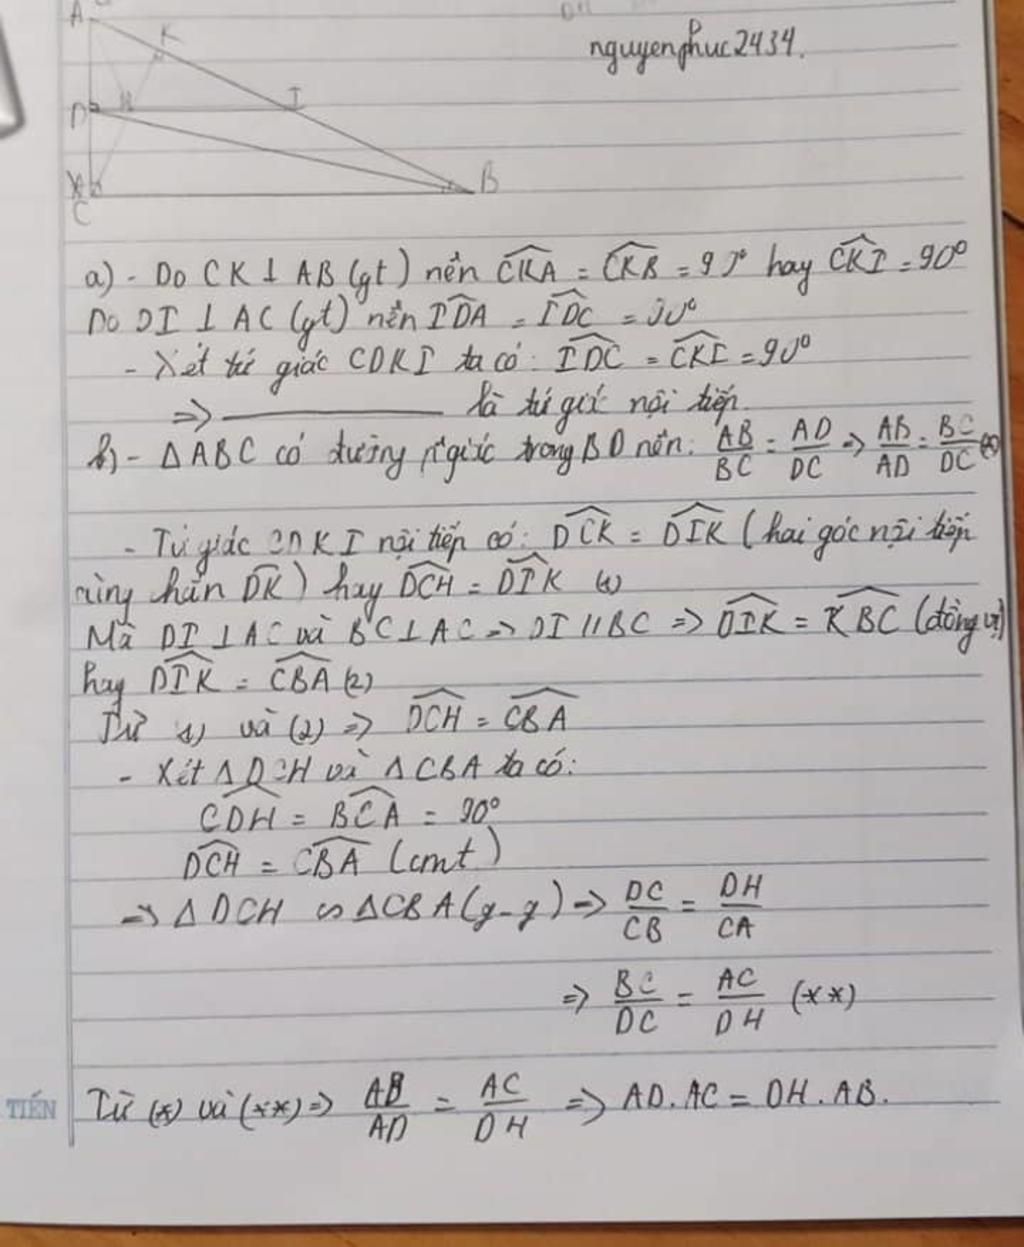 nguyenphuc2434.
A
K
D
H
I
B
C
a) - Do CK ⊥ AB (gt) nên CKA^ = CKB^ = 90° hay CKI^ = 90°
Do DI ⊥ AC (gt) nên IDA^ = IDC^ = 90°
- Xét tứ giác CDKI ta có: IDC^ = CKI^ = 90°
=> ——— là tứ giác nội tiếp.
b) - ΔABC có đường p giác trong BD nên: AB/BC = AD/DC => AB/AD = BC/DC (*)
- Tứ giác CDKI nội tiếp có: DCK^ = DIK^ (hai góc nội tiếp
cùng chắn DK) hay DCH^ = DIK^ (1)
Mà DI ⊥ AC và BC ⊥ AC => DI // BC => DIK^ = KBC^ (đồng vị)
hay DIK^ = CBA^ (2)
Từ (1) và (2) => DCH^ = CBA^
- Xét ΔDCH và ΔCBA ta có:
CDH^ = BCA^ = 90°
DCH^ = CBA^ (cmt)
=> ΔDCH ∽ ΔCBA (g-g) => DC/CB = DH/CA
=> BC/DC = AC/DH (**)
TIẾN
Từ (*) và (**) => AB/AD = AC/DH => AD.AC = DH.AB.